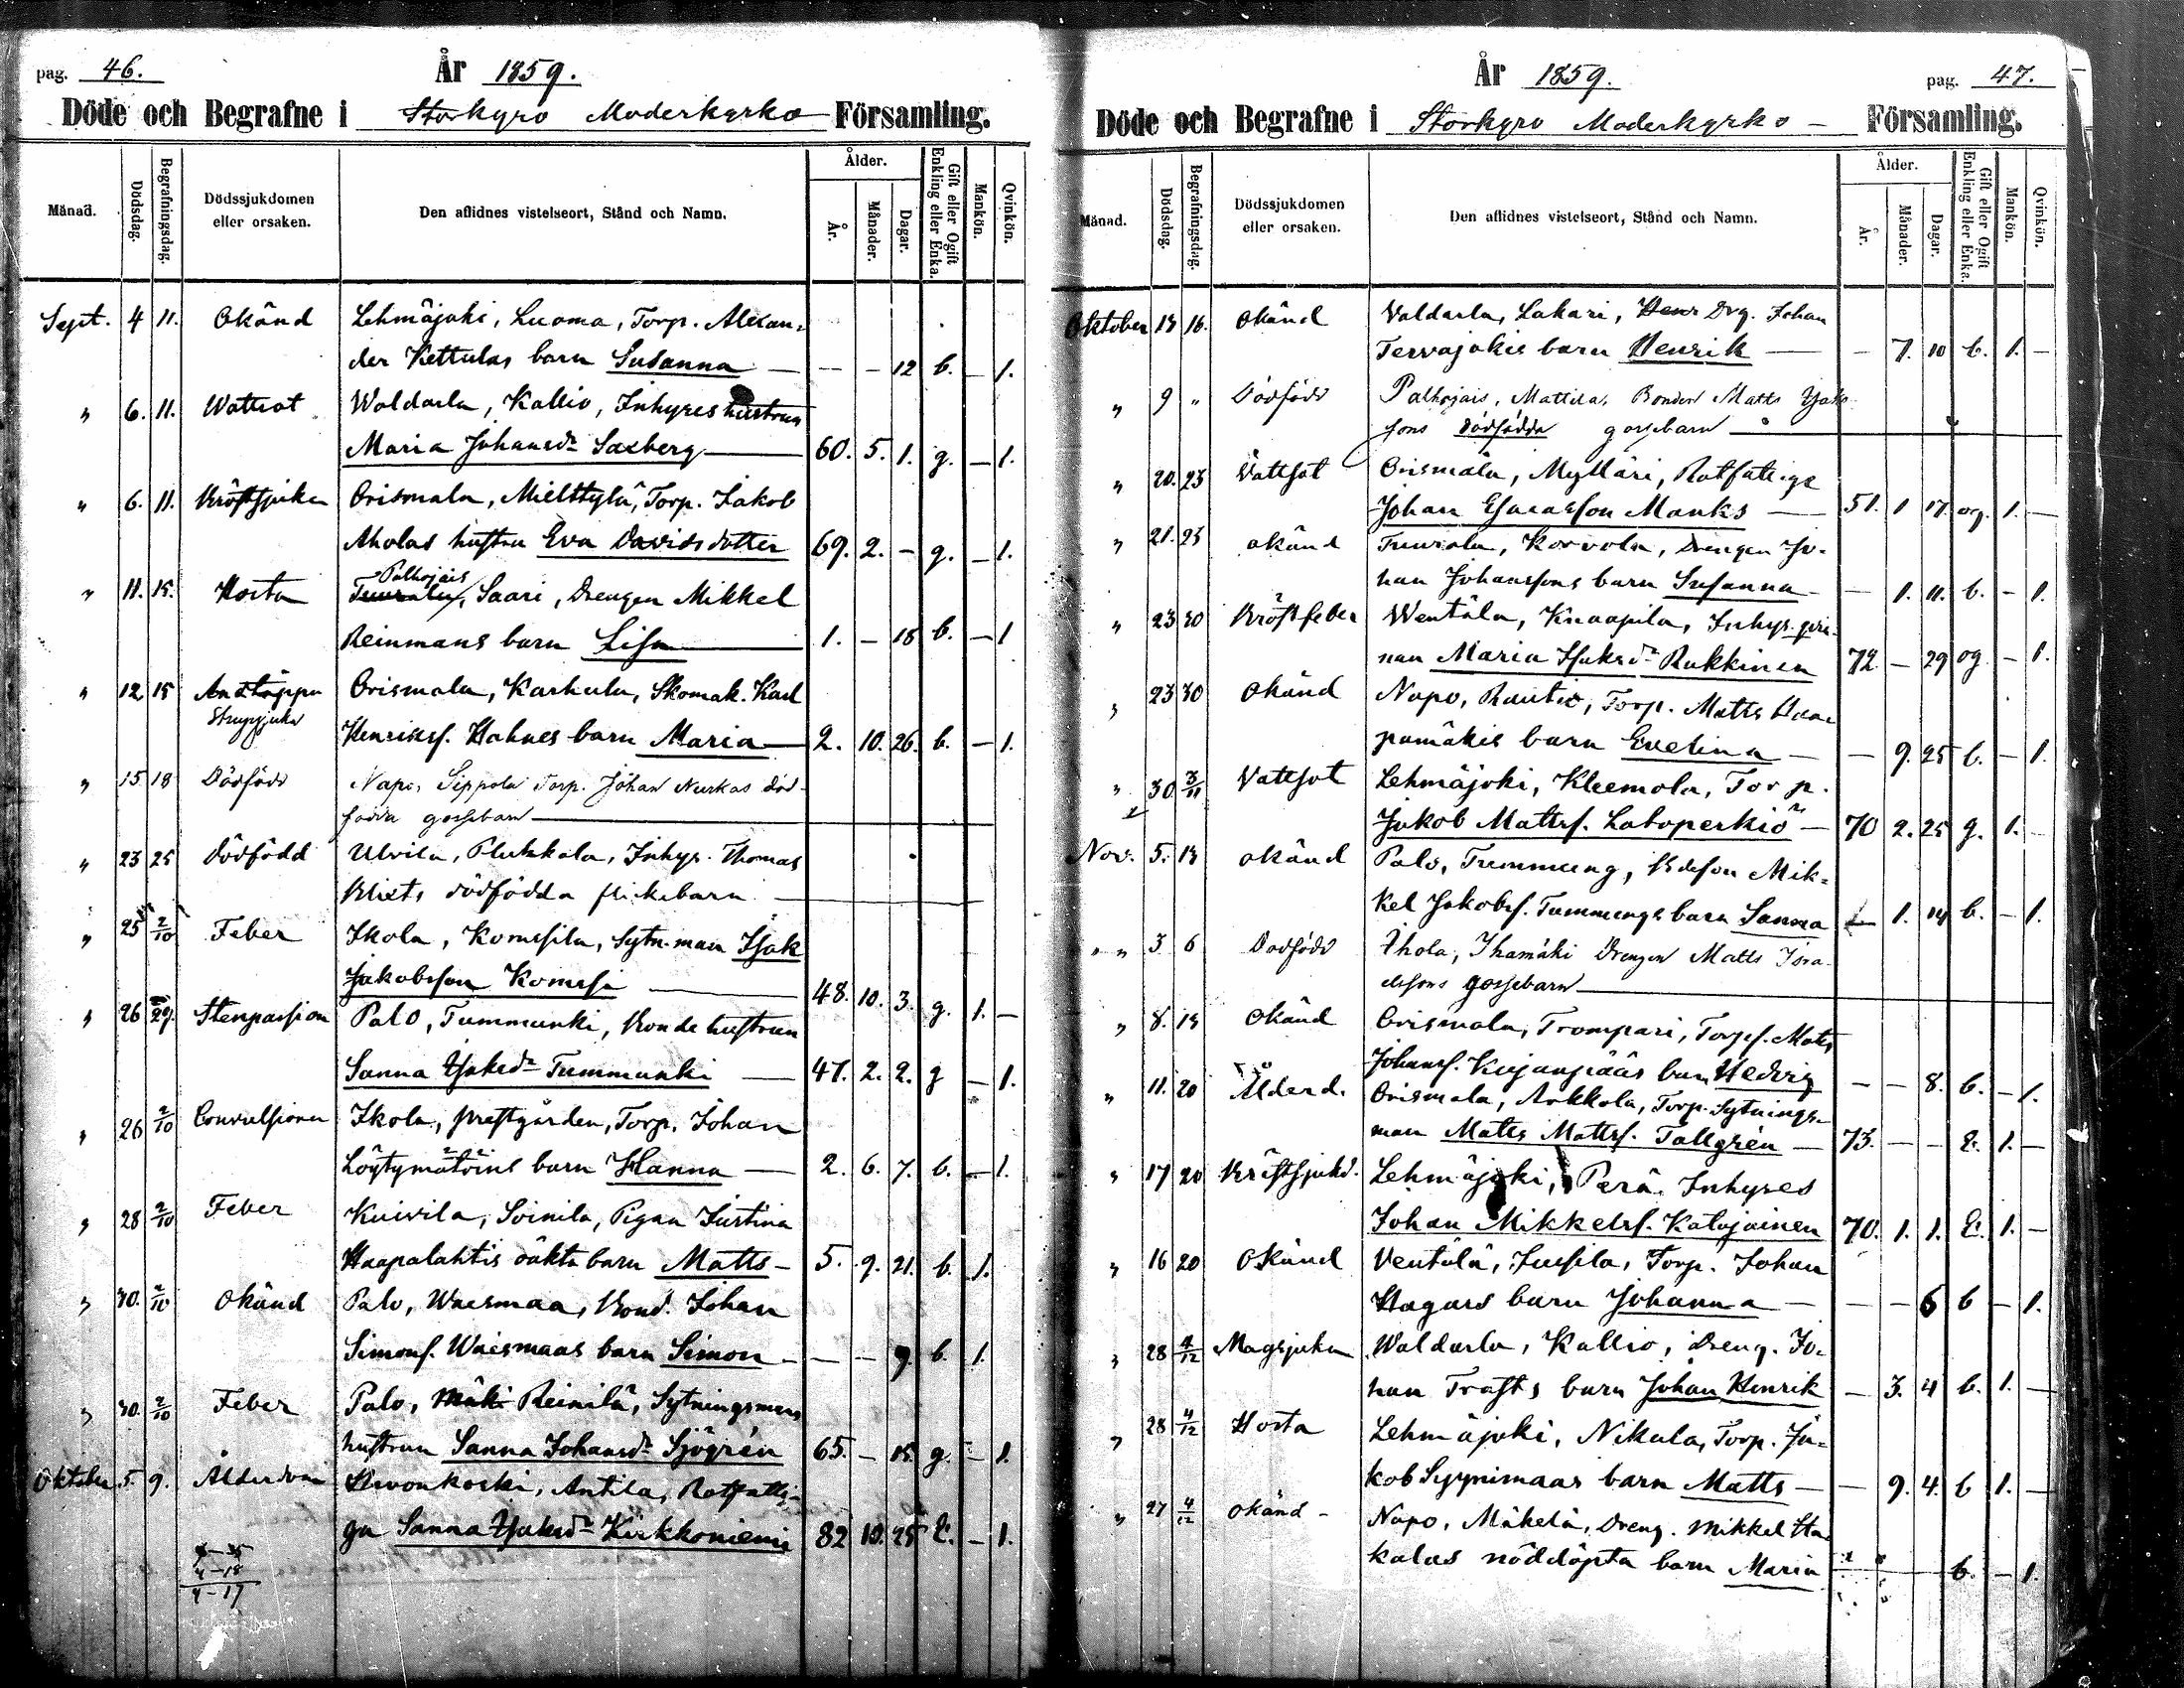 pag. 46.
År 1859.
Döde och Begrafne i Storkyro Moderkyrko Församling.
Månad. Dödsdag. Begrafningsdag. Dödssjukdomen eller orsaken. Den aflidnes vistelseort, Stånd och Namn. Ålder. År. Månader. Dagar. Gift eller Ogift Enkling eller Enka. Mankön. Qvinkön.
Sept. 4 11. Okänd Lehmäjoki, Luoma, Torp. Alexan-
der Kettulas barn Susanna — — — 12 b. — 1.
" 6. 11. Wattsot Waldarla, Kallio, Inhyses hustrun
Maria Johansdr Saxberg 60. 5. 1. g. — 1.
" 6. 11. Bröstsjukn Orismala, Mielttylä, Torp. Jakob
Aholas hustru Eva Davidsdotter 69. 2. — g. — 1.
" 11. 15. Hosta Palhojais
Tuurala, Saari, Drengen Mikkel
Reinmans barn Lisa 1. — 18 b. — 1
" 12 15 Andtäppa Orismala, Karhula, Skomak. Karl
Strupsjuka
Henriksf. Hahnes barn Maria 2. 10. 26. b. — 1.
" 15 18 Dödfödd Napo, Sippola Torp. Johan Nurkas död-
födda gossebarn
" 23 25 Dödfödd Ulvila, Plukkala, Inhys. Thomas
Blixts dödfödda flickebarn
" 25 2/10 Feber Ikola, Komsila, Sytn.man Isak
Jakobsson Komsi 48. 10. 3. g. 1. —
" 26 29. Stenpassion Palo, Tummunki, Bondehustrun
Sanna Isaksdr Tummunki 47. 2. 2. g — 1.
" 26 2/10 Convulsioner Ikola, prestgården, Torp. Johan
Löytymätöins barn Hanna 2. 6. 7. b. — 1.
" 28 2/10 Feber Kuivila, Soinila, Pigan Justina
Haapalahtis oäkta barn Matts 5. 9. 21. b. 1.
" 30. 2/10 Okänd Palo, Waismaa, Bond. Johan
Simonsf. Waismaas barn Simon — — 9. b. 1.
" 30. 2/10 Feber Palo, Mäki Reinilä, Sytningsmans
hustrun Sanna Johansdr Sjögrén 65. — 15. g. — 1.
Oktober 5. 9. Ålderdom Hevonkoski, Antila, Rotfatti-
ga Sanna Isaksdr Kirkkoniemi 82 10. 25 E. — 1.
4—18
4—17
År 1859.
pag. 47.
Döde och Begrafne i Storkyro Moderkyrko Församling.
Månad. Dödsdag. Begrafningsdag. Dödssjukdomen eller orsaken. Den aflidnes vistelseort, Stånd och Namn. Ålder. År. Månader. Dagar. Gift eller Ogift Enkling eller Enka. Mankön. Qvinkön.
Oktober 13 16. Okänd Valdarla, Lakari, Henr Drg. Johan
Tervajokis barn Henrik — 7. 10 b. 1. —
" 9 " Dödfödd Palhojais, Mattila, Bonden Matts Isaks-
sons dödfödda gossebarn
" 20. 23 Vattsot Orismala, Myllari, Rotfattige
Johan Esaiasson Manks 51. 1 17. og. 1. —
" 21. 23 okänd Tuurala, Korvola, Drengen Jo-
han Johanssons barn Susanna — 1. 11. b. — 1.
" 23 30 Bröstfeber Wentälä, Knaapila, Inhys. qvin-
nan Maria Isaksdr Rukkinen 72. — 29 og — 1.
" 23 30 Okänd Napo, Rautio, Torp. Matts Haa-
pamäkis barn Evelina — 9. 25 b. — 1.
" 30 3/11 Vattsot Lehmäjoki, Kleemola, Torp.
Jakob Mattsf. Latoperkiö 70 2. 25 g. 1. —
Nov. 5. 13 okänd Palo, Tummung, Bdeson Mik-
kel Jakobsf. Tummungs barn Sanna — 1. 14 b. — 1.
" " 3 6 Dödfödd Ihola, Ihamäki Drengen Matts Isra-
elssons gossebarn
" 8. 13 Okänd Orismala, Trompari, Torpsf. Matts
Johansf. Kujanpääs barn Hedvig — — 8. b. — 1.
" 11. 20 Ålderd. Orismala, Arkkola, Torp. Sytnings-
man Matts Mattsf. Tallgrén 73. — — E. 1. —
" 17 20 Bröstsjukd. Lehmäjoki, Perä. Inhyses
Johan Mikkelsf. Katajainen 70. 1. 1. E. 1. —
" 16 20 Okänd Ventälä, Jussila, Torp. Johan
Hagars barn Johanna — — 6 b — 1.
" 28 4/12 Magsjukn Waldarla, Kallio, Dreng. Jo-
han Trasts barn Johan Henrik — 3. 4 b. 1. —
" 28 4/12 Hosta Lehmäjoki, Nikula, Torp. Ja-
kob Syynimaas barn Matts — 9. 4. b 1. —
" 27 4/12 okänd - Napo, Mäkelä, Dreng. Mikkel Ha-
kalas nöddöpta barn Maria b. — 1.